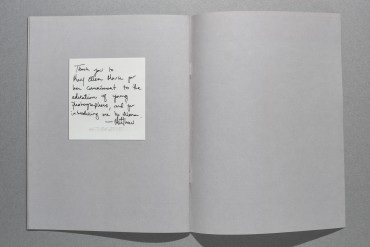 Thank you to
Mary Ellen Mark for
her commitment to the
education of young
photographers, and for
introducing me to